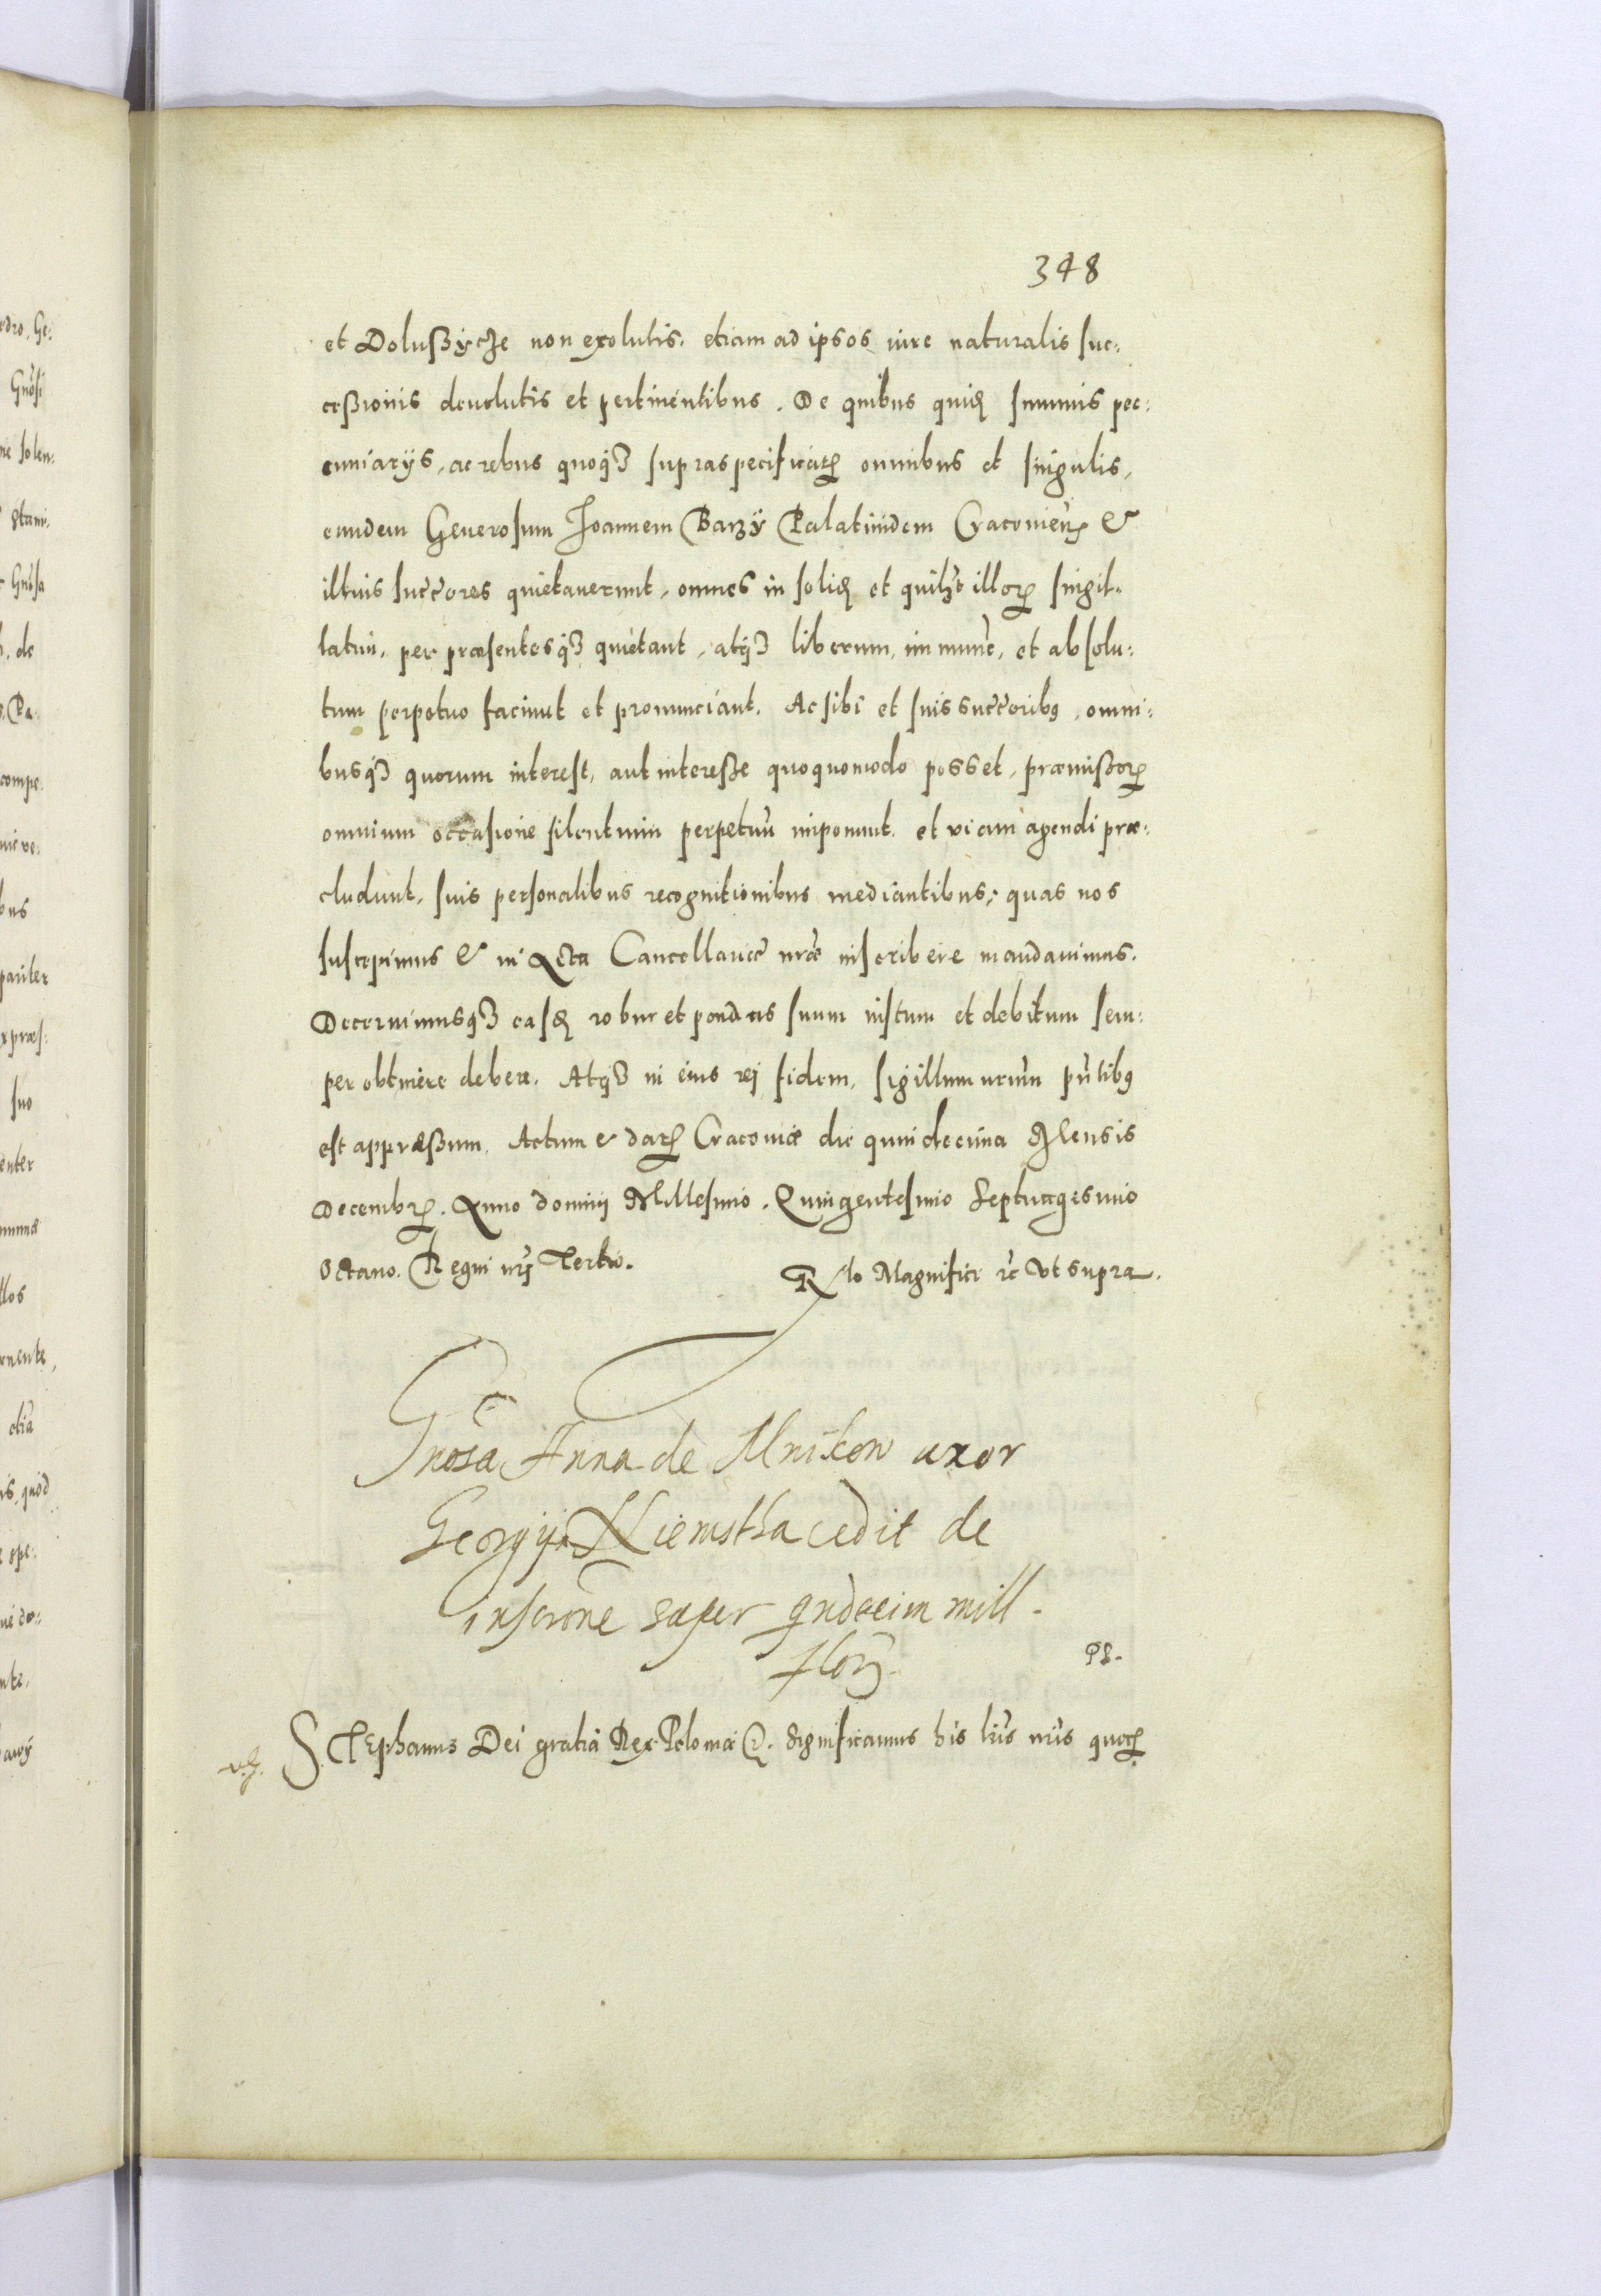 348
et Dolußycze non exolutis. etiam ad ipsos iure naturalis suc:
ceßionis deuolutis et pertinentibus. De quibus quid summis pec:
cuniarijs, ac rebus quoq3 supraspecificatꝝ omnibus et singulis,
eundem Generosum Joannem Barzÿ Palatinidem Cracovien̄ &
illius succ̄ores quietauerunt, omnes in solid et quilib̄t illorꝝ singil:
latim, per præsentesq3 quietant, atq3 liberum, immunē, et absolu:
tum perpetuo faciunt et pronunciant. Ac sibi et suis succ̄oribꝰ, omni:
busq3 quorum interest, aut intereße quoquomodo posset, præmißorꝝ
omnium occasione silentium perpetuū imponunt, et viam agendi præ:
cludunt, suis personalibus recognitionibus mediantibus; quas nos
suscepimus & in Acta Cancellariæ nr̄æ inscribere mandauimus.
Decernimusq3 easd robur et pondus suum iustum et debitum sem:
per obtinere debere. Atq3 in eius rei fidem, sigillum nrūm pn̄tibꝰ
est appræßum. Actum & datꝝ Cracoviæ die quindecima Mensis
Decembrꝝ. Anno domini Millesimo. Quingentesimo Septuagesimo
octauo. Regni nrj Tertio.
Rlo Magnifici ꝛc vt supra.
Gnosa Anna de Mnikow uxor
Georgij Niemstha cedit de
inscrōne super qndecim mill.
flor.
PS.
STEphanus Dei gratia Rex Poloniæ ꝛ. Significamus his lris nris quorꝝ